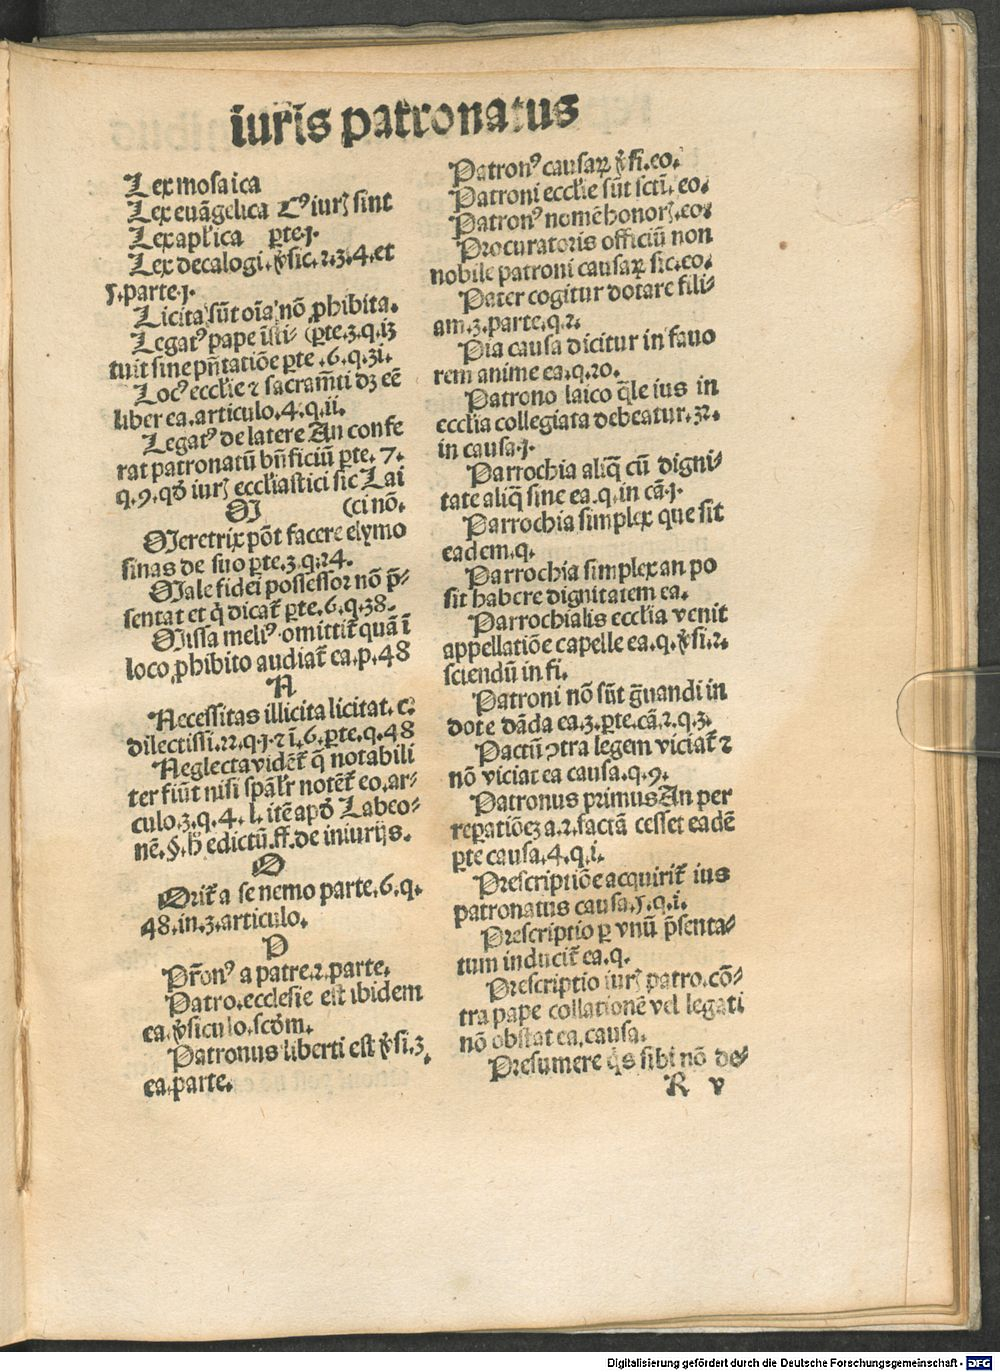 iuris patronatus
Lex mosaica
Lex euāgelica Cꝰ iurꝭ sint
Lex aplica ꝑte.j.
Lex decalogi.ꝟsic.2.3.4.et
5.parte.j.
Licita sūt oīa nō ꝓhibita.
Legatꝰ pape īsti- (ꝑte.3.q.i3
tuit sine pn̄tatiōe ꝑte.6.q.3i.
Locꝰ eccl̄ie ⁊ sacram̄ti dꝫ eē
liber ea.articulo.4.q.ii.
Legatꝰ de latere An confe
rat patronatū bn̄ficiū ꝑte.7.
q.9.qđ iurꝭ eccl̄iastici sic Lai
M (ci nō.
Meretrix pōt facere elymo
sinas de suo ꝑte.3.q.24.
Male fidei possessor nō p̄-
sentat et q̇ dicat̄ ꝑte.6.q.38.
Missa meliꝰ omittit̄ quā ī
loco ꝓhibito audiat̄ ea.p.48
N
Necessitas illicita licitat.c.
dilectissi.22.q.j.⁊ ī.6.ꝑte.q.48
Neglecta vident̄ q̄ notabili
ter fiūt nisi spāl'r notēt̄ eo.ar-
culo.3.q.4.l.itē apđ Labeo-
nē.§.h̄ edictū.ff.de iniurijs.
O
Orit̄ a se nemo parte.6.q.
48.in.3.articulo.
P
Pr̄onꝰ a patre.2.parte.
Patro.ecclesie est ibidem
ea.ꝟsiculo.scđm.
Patronus liberti est ꝟsi.3.
ea.parte.
Patronꝰ causaꝝ ꝟ.fi.eo.
Patroni eccl̄ie sūt scti.eo.
Patronꝰ nomē honorꝭ.eo.
Procuratoris officiū non
nobile patroni causaꝝ sic.eo.
Pater cogitur dotare fili-
am.3.parte.q.2.
Pia causa dicitur in fauo
rem anime ea.q.20.
Patrono laico q̄le ius in
eccl̄ia collegiata debeatur.32.
in causa.j.
Parrochia aliq̄ cū digni-
tate aliq̄ sine ea.q.in cā.j.
Parrochia simplex que sit
eadem.q.
Parrochia simplex an po
sit habere dignitatem ea.
Parrochialis eccl̄ia venit
appellatiōe capelle ea.q.ꝟsi.2.
sciendū in fi.
Patroni nō sūt ḡuandi in
dote dāda ea.3.ꝑte.cā.2.q.3.
Pactū ꝯtra legem viciat̄ ⁊
nō viciat ea causa.q.9.
Patronus primus An per
reꝑatiōeꝫ a.2.factā cesset eadē
ꝑte causa.4.q.i.
Prescriptiōe acquirit̄ ius
patronatus causa.5.q.i.
Prescriptio ꝑ vnū p̄senta-
tum inducit̄ ea.q.
Prescriptio iurꝭ patro.cō-
tra pape collationē vel legati
nō obstat ea.causa.
Presumere q̇s sibi nō de-
R v
Digitalisierung gefördert durch die Deutsche Forschungsgemeinschaft - DFG